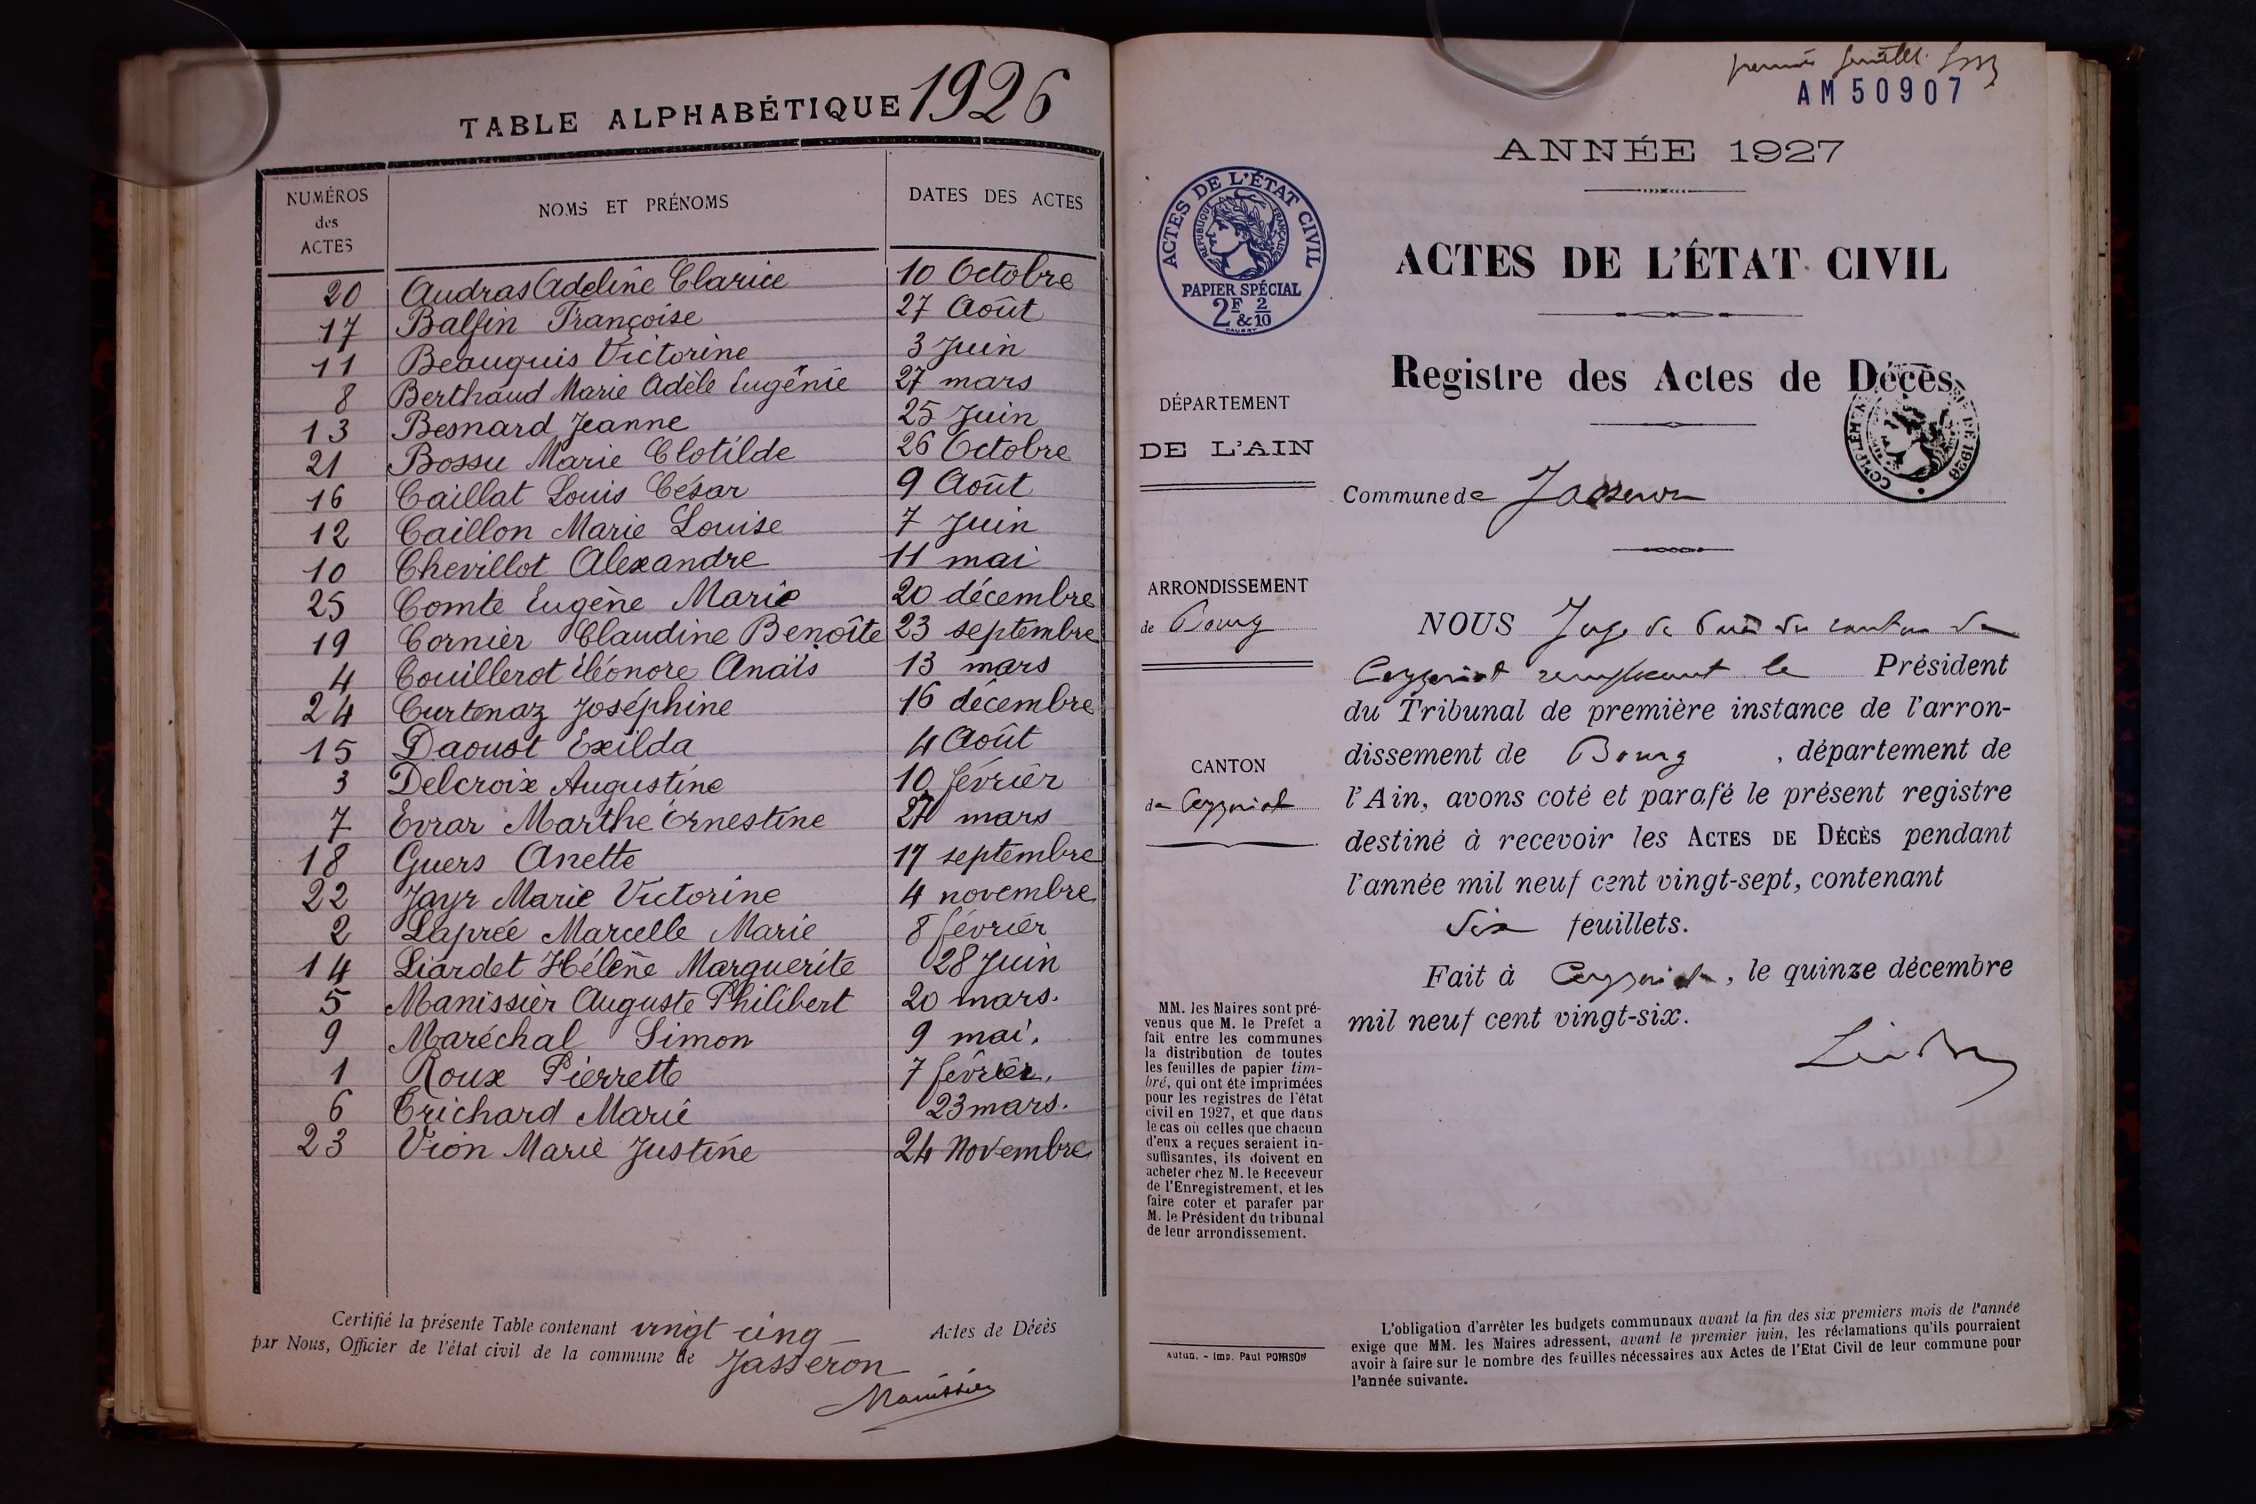 TABLE ALPHABÉTIQUE 1926
NUMÉROS des ACTES NOMS ET PRÉNOMS DATES DES ACTES
20 Audras Adeline Clarice 10 Octobre
17 Balfin Françoise 27 Août
11 Beauquis Victorine 3 Juin
8 Berthaud Marie Adèle Eugénie 27 mars
13 Besnard Jeanne 25 Juin
21 Bossu Marie Clotilde 26 Octobre
16 Caillat Louis César 9 Août
12 Caillon Marie Louise 7 Juin
10 Chevillot Alexandre 11 mai
25 Comte Eugène Marie 20 décembre
19 Cornier Claudine Benoîte 23 septembre
4 Couillerot Éléonore Anaïs 13 mars
24 Curtenaz Joséphine 16 décembre
15 Daoust Exilda 4 Août
3 Delcroix Augustine 10 février
7 Evrar Marthe Ernestine 27 mars
18 Guers Anette 17 septembre
22 Jayr Marie Victorine 4 novembre
2 Laprée Marcelle Marie 8 février
14 Liardet Hélène Marguerite 28 Juin
5 Manissier Auguste Philibert 20 mars.
9 Maréchal Simon 9 mai.
1 Roux Pierrette 7 février.
6 Trichard Marie 23 mars.
23 Vion Marie Justine 24 Novembre
Certifié la présente Table contenant vingt cinq Actes de Décès
par Nous, Officier de l'état civil de la commune de Jasseron
Manissier
premier feuillet
AM 50907
ANNÉE 1927
ACTES DE L'ÉTAT CIVIL
RÉPUBLIQUE FRANÇAISE
PAPIER SPÉCIAL
2F & 2/10
ACTES DE L'ÉTAT CIVIL
Registre des Actes de Décès
DÉPARTEMENT
DE L'AIN
Commune de Jasseron
ARRONDISSEMENT
de Bourg
CANTON
de Ceyzériat
NOUS Juge de Paix du canton de
Ceyzériat remplaçant le Président
du Tribunal de première instance de l'arron-
dissement de Bourg, département de
l'Ain, avons coté et parafé le présent registre
destiné à recevoir les ACTES DE DÉCÈS pendant
l'année mil neuf cent vingt-sept, contenant
six feuillets.
Fait à Ceyzériat, le quinze décembre
mil neuf cent vingt-six.
MM. les Maires sont pré-
venus que M. le Préfet a
fait entre les communes
la distribution de toutes
les feuilles de papier tim-
bré, qui ont été imprimées
pour les registres de l'état
civil en 1927, et que dans
le cas où celles que chacun
d'eux a reçues seraient in-
suffisantes, ils doivent en
acheter chez M. le Receveur
de l'Enregistrement, et les
faire coter et parafer par
M. le Président du tribunal
de leur arrondissement.
Autun. - Imp. Paul POIRSON
L'obligation d'arrêter les budgets communaux avant la fin des six premiers mois de l'année
exige que MM. les Maires adressent, avant le premier juin, les réclamations qu'ils pourraient
avoir à faire sur le nombre des feuilles nécessaires aux Actes de l'Etat Civil de leur commune pour
l'année suivante.